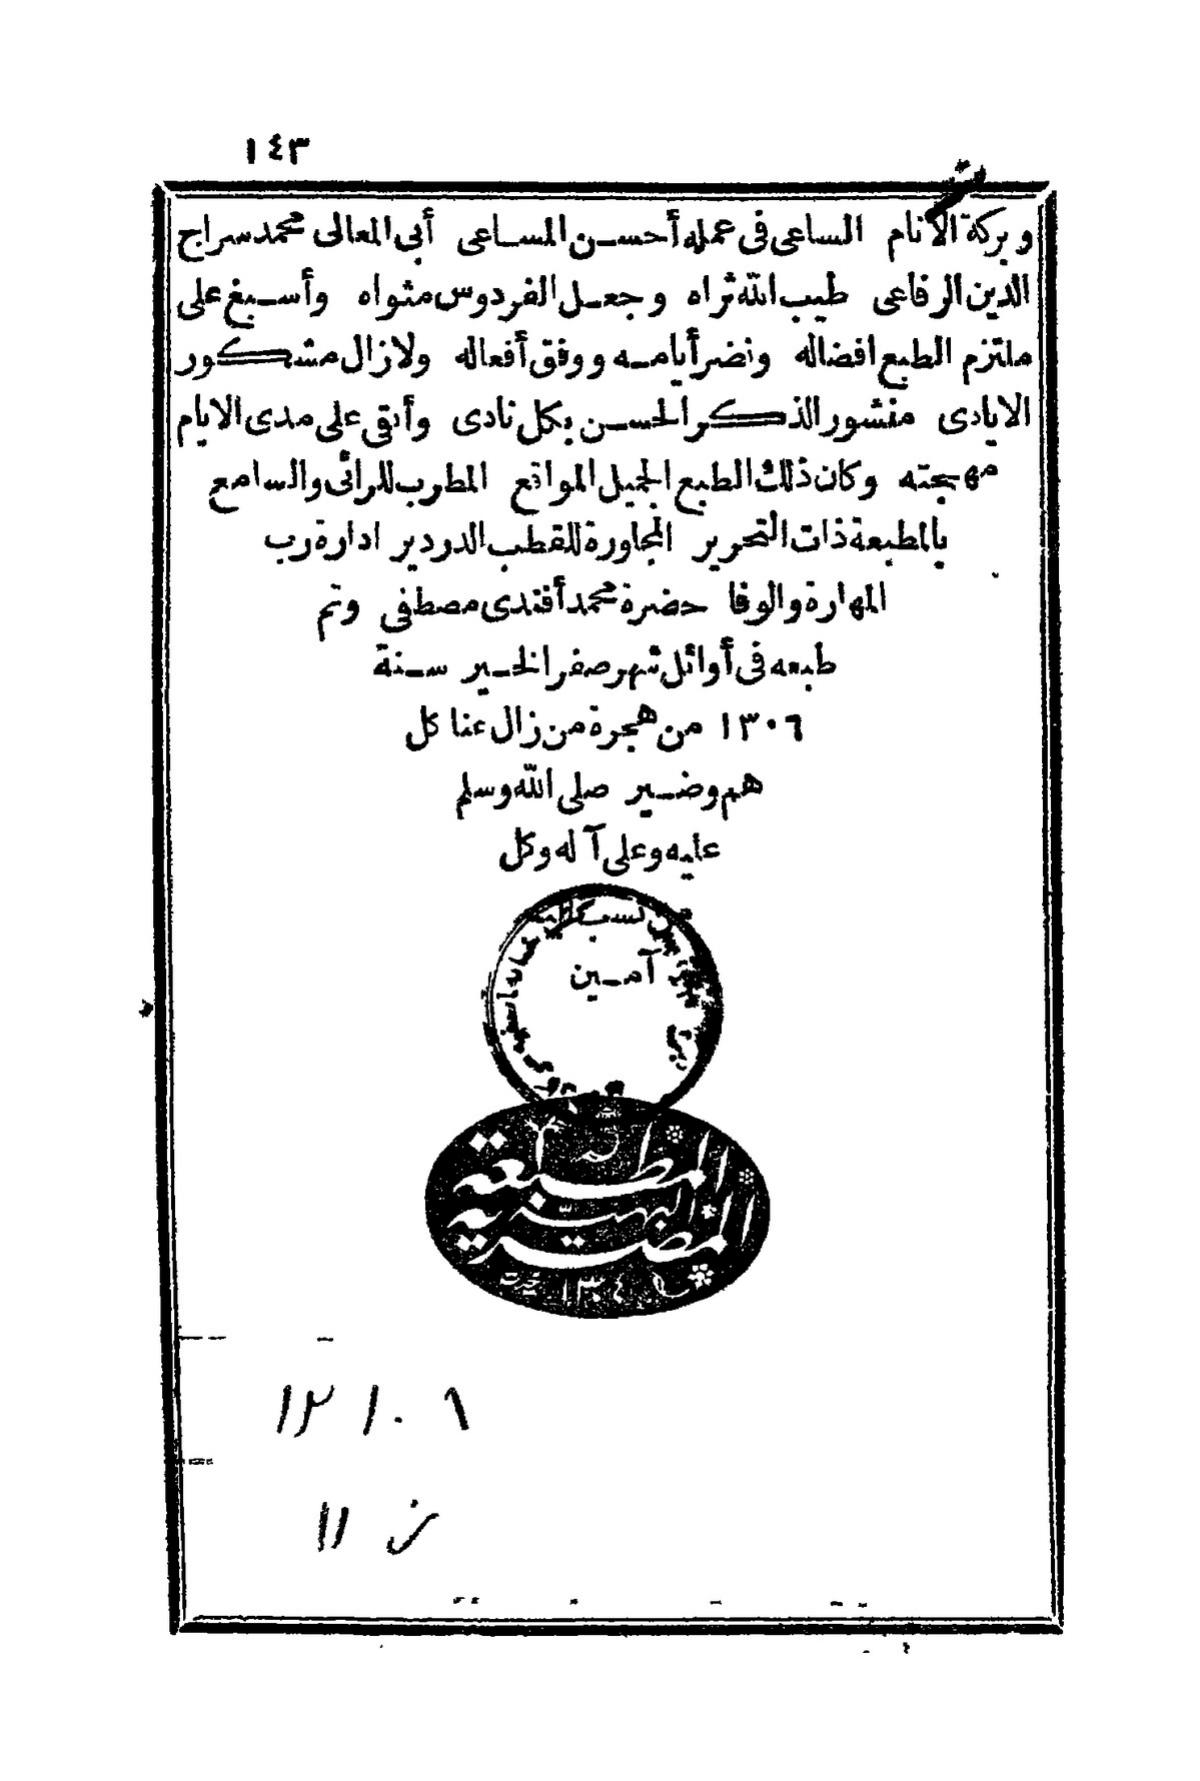 ١٤٣
وبركة الأنام الساعى فى عمله أحسن المساعى أبى المعالى محمد سراج
الدين الرفاعى طيب الله ثراه وجعل الفردوس مثواه وأسبغ على
ملتزم الطبع افضاله ونضر أيامه ووفق أفعاله ولازال مشكور
الايادى منشور الذكر الحسن بكل نادى وأبقى على مدى الايام
مهجته وكان ذلك الطبع الجميل المواقع المطرب للرائى والسامع
بالمطبعة ذات التحرير المجاورة للقطب الدردير ادارة رب
المهارة والوفا حضرة محمد أفندى مصطفى وتم
طبعه فى أوائل شهر صفر الخير سنة
١٣٠٦ من هجرة من زال عنا كل
هم وضير صلى الله وسلم
عليه وعلى آله وكل
آمين
المطبعة
البهية
المصرية
١٣٠٤
١٢ ١٠ ٩
ز ١١